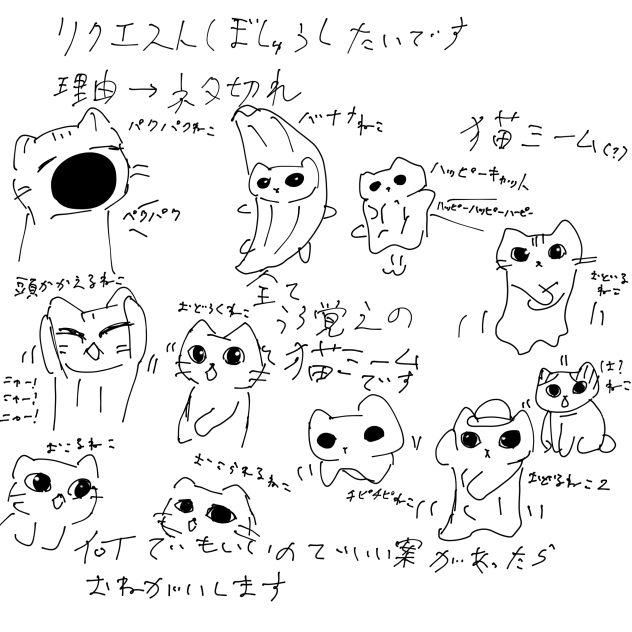 リクエストくぼしゅうしたいです
理由→ネタ切れ
パクパクねこ
バナナねこ
猫ミーム(?)
ハッピーキャット
ハッピーハッピーハーピー
パクパク
おどる
ねこ
頭かかえるねこ
おどろくねこ
全て
うろ覚えの
猫ミーム
です
ニャー!
ニャー!
ニャー!
は?
ねこ
おこるねこ
おこられるねこ
チピチピねこ
おどるねこ2
何でもいいのでいい案があったら
おねがいします